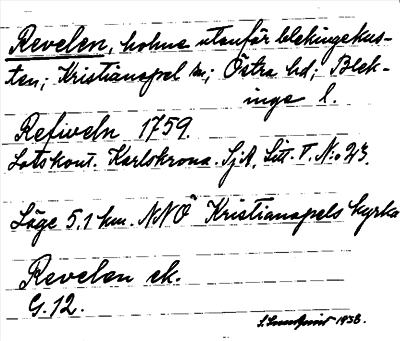 Revelen, holme utanför blekingekus-
ten; Kristianopel sn; Östra hd; Blek-
inge l.
Refiveln 1759.
Lotskont. Karlskrona. SjA, Litt. T. N:o 23.
Läge 5,1 km. NNÖ Kristianopels kyrka
Revelen ek.
G. 12.
S. Lundqvist 1938.